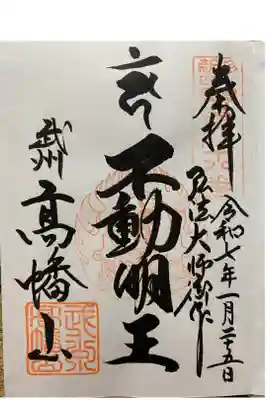 奉拝
弘法大師御作
令和七年一月二十五日
不動明王
武州
高幡山